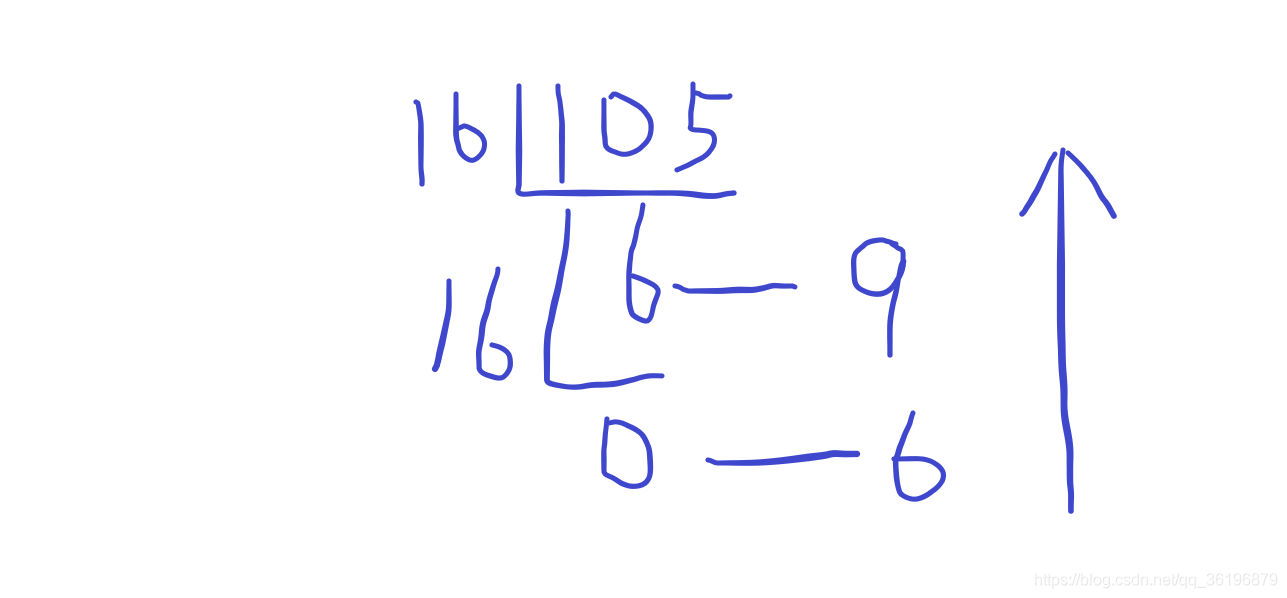 16 105
16 6 — 9
0 — 6
https://blog.csdn.net/qq_36196879